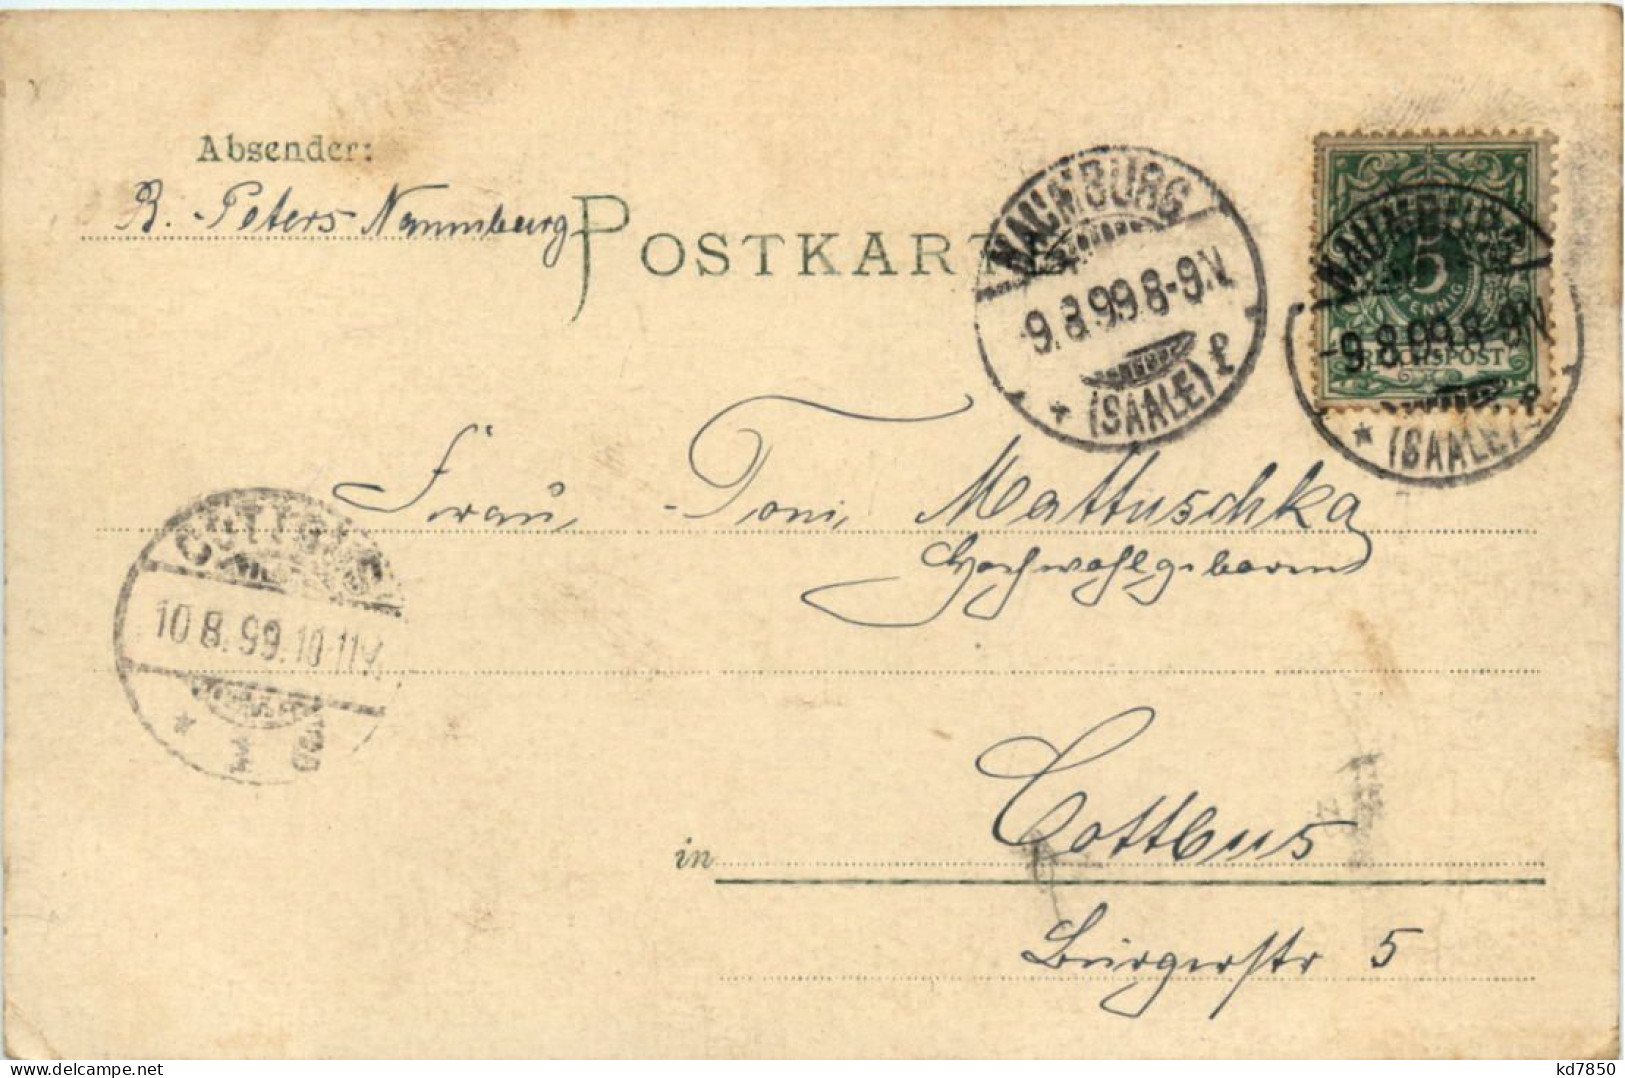 Absender:
B. Peters Naumburg
POSTKARTE
NAUMBURG
-9.8.99.8-9.V.
* (SAALE) f
5
PFENNIG
REICHSPOST
NAUMBURG
-9.8.99.8-9V.
* (SAALE)
Frau Toni Mattuschka
Hochwohlgeboren
COTTBUS
10.8.99.10-11V
*
in Cottbus
Bürgerstr 5
kd7850